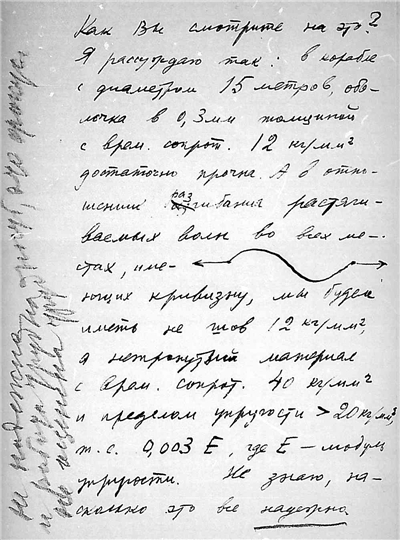 Как Вы смотрите на это?
Я рассуждаю так: в корабле
с диаметром 15 метров, обо-
лочка в 0,3 мм толщиной
с врем. сопрот. 12 кг/мм²
достаточно прочна. А в отно-
шении разгибания растяги-
ваемых волн во всех ме-
стах, име-
ющих кривизну, мы будем
иметь не шов 12 кг/мм²,
а нетронутый материал
с врем. сопрот. 40 кг/мм²
и пределом упругости > 20 кг/мм²,
т.е. 0,003 E, где E – модуль
упругости. Не знаю, на-
сколько это все надежно
не надежна